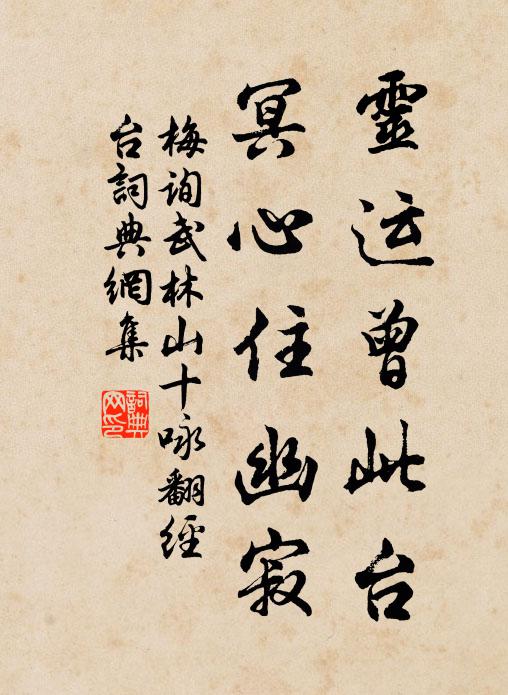 靈运曾此台
冥心住幽寂
梅询武林山十咏翻經
台詞典網集
詞典
网印